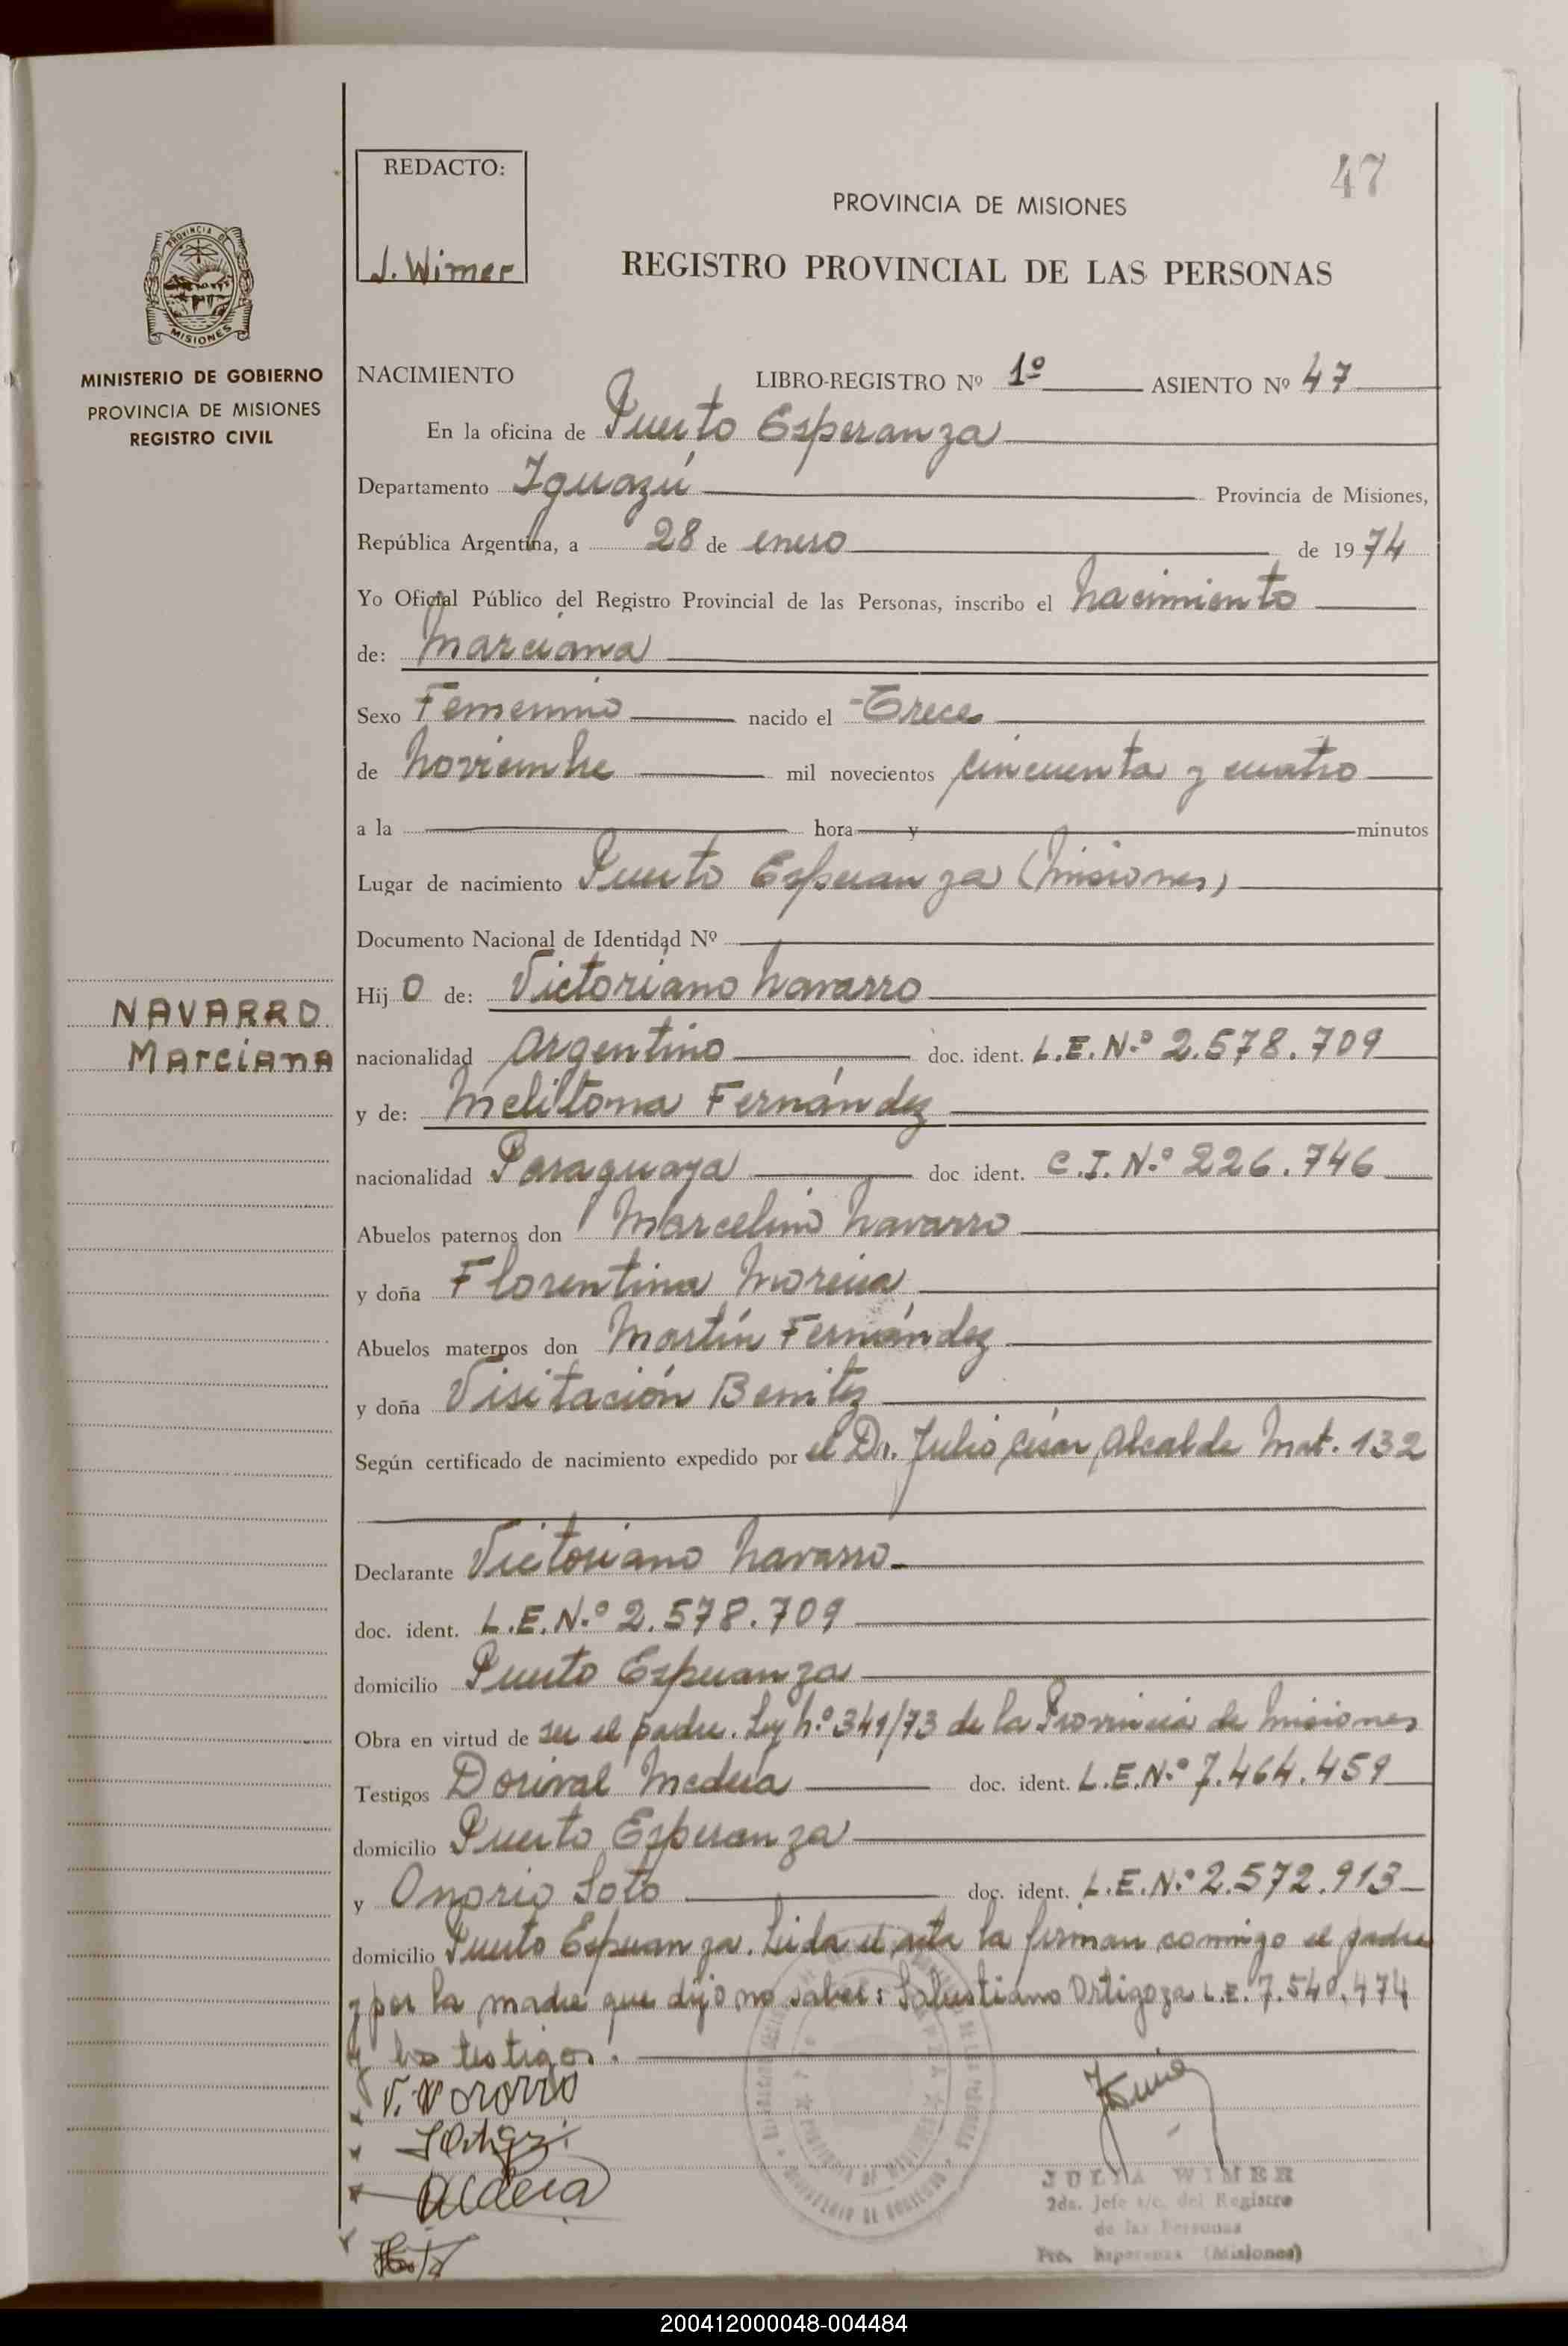 47
REDACTO:
J. Wimer
PROVINCIA DE MISIONES
REGISTRO PROVINCIAL DE LAS PERSONAS
PROVINCIA DE
MISIONES
MINISTERIO DE GOBIERNO
PROVINCIA DE MISIONES
REGISTRO CIVIL
NACIMIENTO LIBRO-REGISTRO Nº 1º ASIENTO Nº 47
En la oficina de Puerto Esperanza
Departamento Iguazú Provincia de Misiones,
República Argentina, a 28 de enero de 1974
Yo Oficial Público del Registro Provincial de las Personas, inscribo el nacimiento
de: Marciana
Sexo Femenino nacido el Trece
de noviembre mil novecientos cincuenta y cuatro
a la hora y minutos
Lugar de nacimiento Puerto Esperanza (Misiones)
Documento Nacional de Identidad Nº
Hij o de: Victoriano Navarro
NAVARRO
Marciana
nacionalidad Argentino doc. ident. L.E.N.º 2.578.709
y de: Melitona Fernández
nacionalidad Paraguaya doc ident. C.I.N.º 226.746
Abuelos paternos don Marcelino Navarro
y doña Florentina Moreira
Abuelos maternos don Martín Fernández
y doña Visitación Benitez
Según certificado de nacimiento expedido por el Dr. Julio César Alcalde Mat. 132
Declarante Victoriano Navarro
doc. ident. L.E.N.º 2.578.709
domicilio Puerto Esperanza
Obra en virtud de ser el padre. Ley N.º 341/73 de la Provincia de Misiones
Testigos Dorival Medeia doc. ident. L.E.N.º 7.464.459
domicilio Puerto Esperanza
y Onorio Soto doc. ident. L.E.N.º 2.572.913
domicilio Puerto Esperanza. Leida el acta la firman conmigo el padre
y por la madre que dijo no saber: Salustiano Ortigoza L.E. 7.540.474
y los testigos.
V. Navarro
JULIA WIMER
2da. Jefe a/c. del Registro
de las Personas
Pto. Esperanza (Misiones)
200412000048-004484